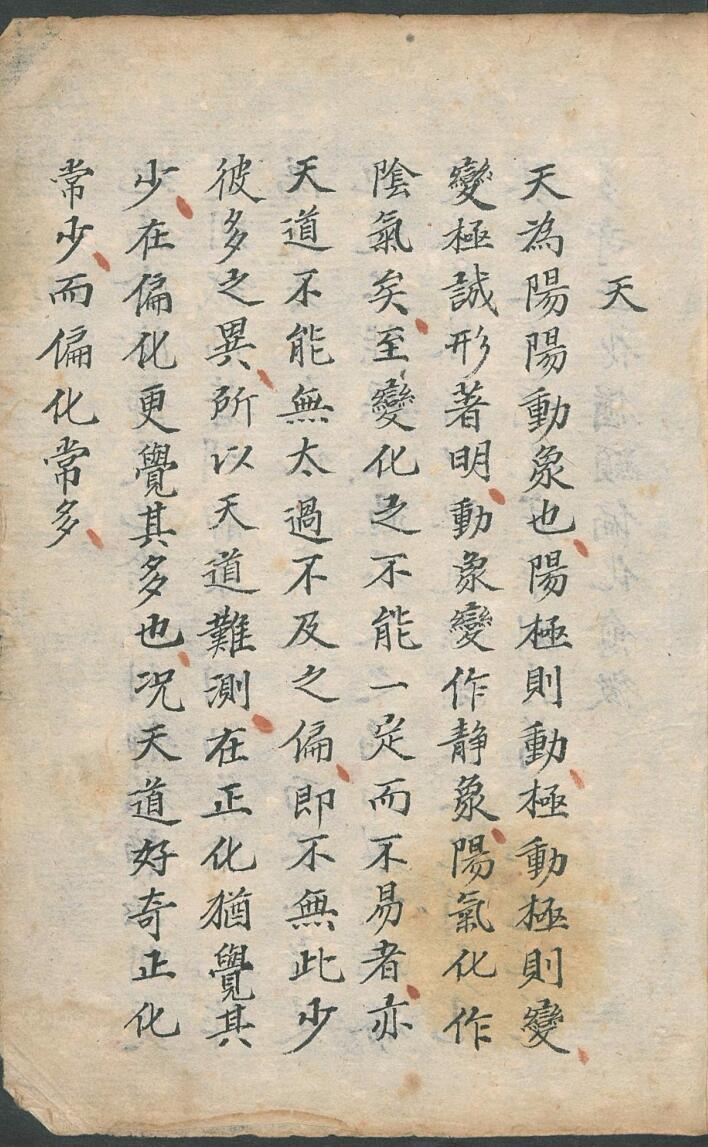 天
天為陽陽動象也陽極則動極動極則變
變極誠形著明動象變作静象陽氣化作
陰氣矣至變化之不能一定而不易者亦
天道不能無太過不及之偏即不無此少
彼多之異所以天道難測在正化猶覺其
少在偏化更覺其多也况天道好奇正化
常少而偏化常多